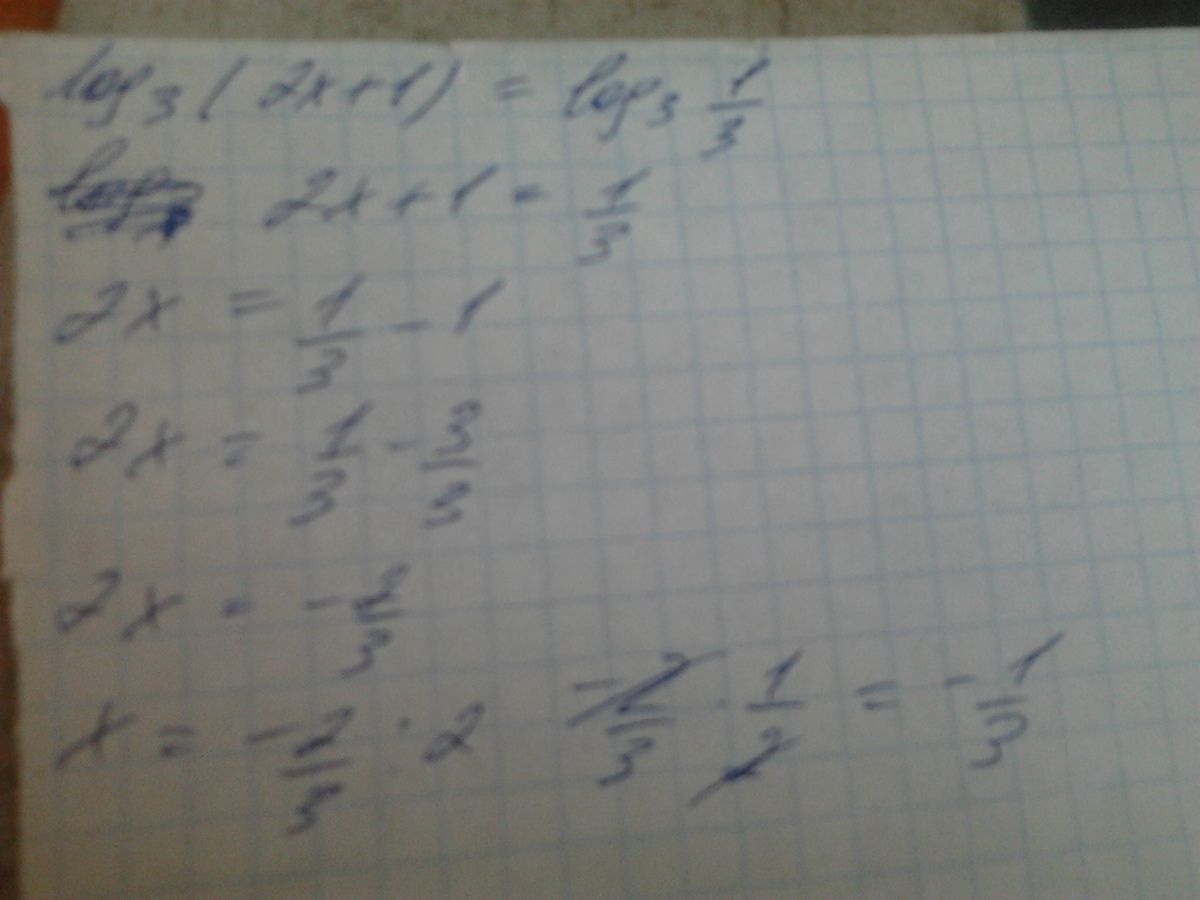 log₃(2x+1) = log₃ 1/3
2x+1 = 1/3
2x = 1/3 - 1
2x = 1/3 - 3/3
2x = -2/3
x = -2/3 : 2   -2/3 · 1/2 = -1/3